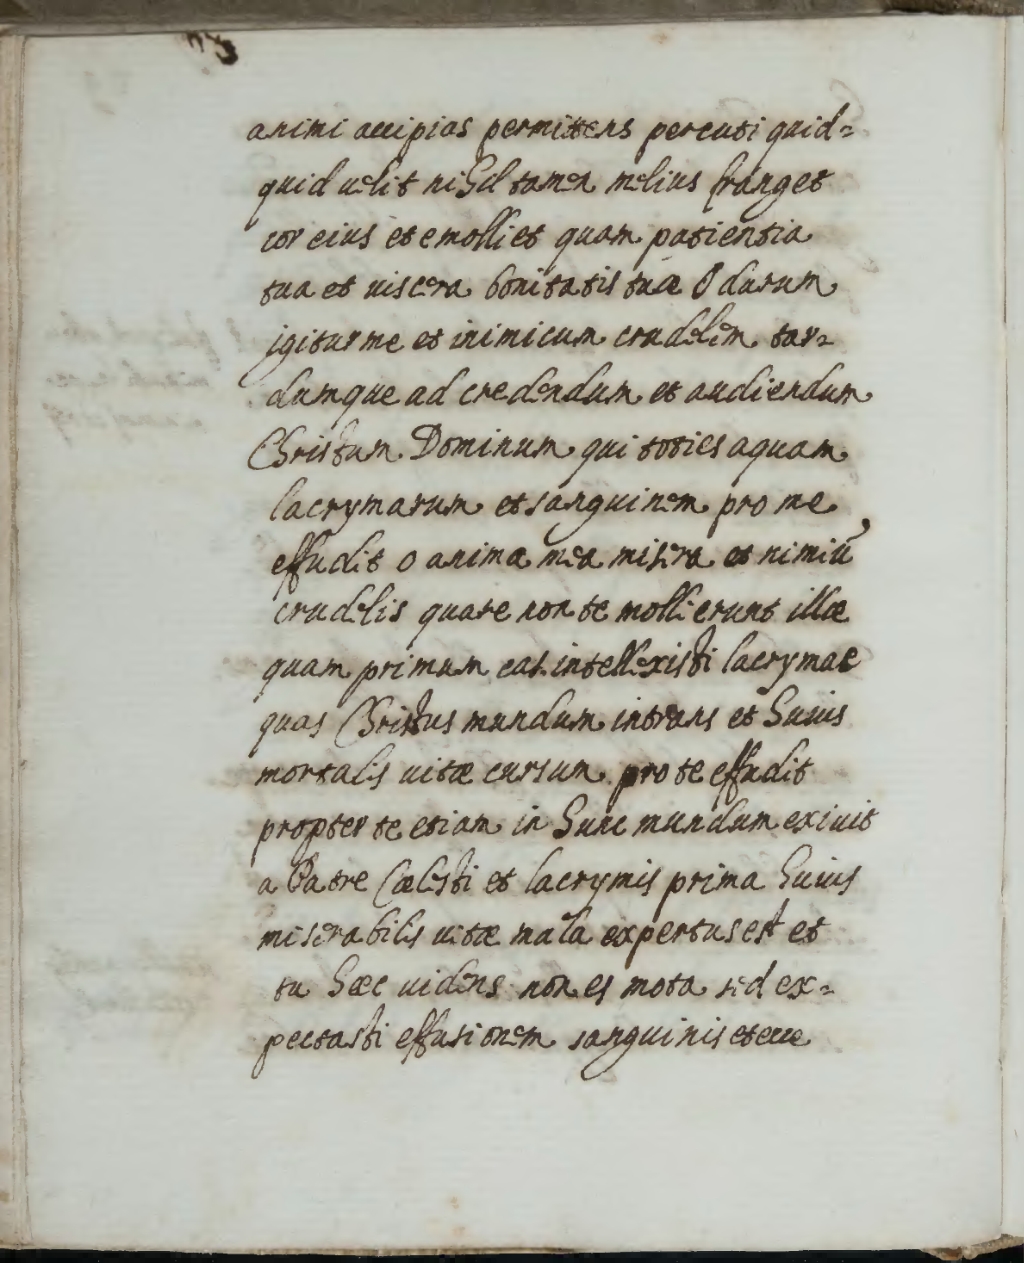 animi accipias permittens percuti quid=
quid uelit nihil tamen melius franget
cor eius et emolliet quam patientia
tua et uiscera bonitatis tuæ O durum
igitur me et inimicum crudelem tar=
dumque ad credendum et audiendum
Christum Dominum qui toties aquam
lacrymarum et sanguinem pro me
effudit o anima mea misera et nimiū
crudelis quare non te mollierunt illæ
quam primum eas intellexisti lacrymae
quas Christus mundum intrans et huius
mortalis uitæ cursum pro te effudit
propter te etiam in hunc mundum exiuit
a Patre Cælesti et lacrymis prima huius
miserabilis uitæ mala expertus est et
tu hæc uidens non es mota sed ex=
pectasti effusionem sanguinis et ecce